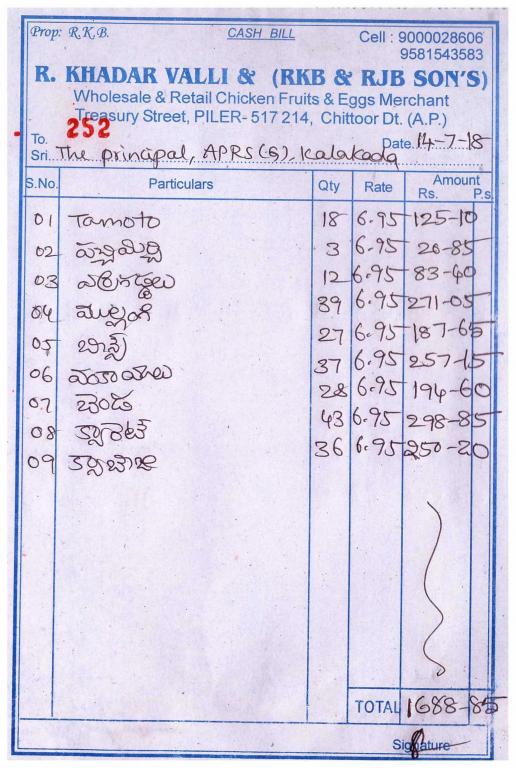 Prop: R.K.B. CASH BILL Cell : 9000028606
9581543583
R. KHADAR VALLI & (RKB & RJB SON'S)
Wholesale & Retail Chicken Fruits & Eggs Merchant
Treasury Street, PILER- 517 214, Chittoor Dt. (A.P.)
252
To. Date. 14-7-18
Sri. The principal, APRS(G), Kalakada
S.No. Particulars Qty Rate Amount
Rs. P.s.
01 Tamoto 18 6.95 125-10
02 పచ్చిమిర్చి 3 6.95 20-85
03 ఎర్రగడ్డలు 12 6.95 83-40
04 ముల్లంగి 39 6.95 271-05
05 బీన్స్ 27 6.95 187-65
06 వంకాయలు 37 6.95 257-15
07 బెండ 28 6.95 194-60
08 క్యారెట్ 43 6.95 298-85
09 క్యాబేజి 36 6.95 250-20
TOTAL 1688-85
Signature